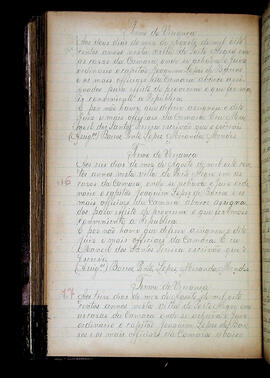 Termo de Vereança
Aos dous dias do mez de Agosto de mil oito
centos annos nesta villa de Porto Alegre em
as cazas da Camara onde se achava o Juiz
ordinario o capitão Joaquim Lopes de Barros
e os mais officiaes da Camara abaixo assi
gnados para effeito de proverem o que for mais
conveniente a Republica
E por não haver que deferir assignou o dito
Juiz e mais officiaes da Camara Eu Ma
noel dos Santos escrivão que o escrevi
Barros Lopes Miranda Mendes
Termo de Vereança
16
Aos seis dias do mez de Agosto de mil oito cen
tos annos nesta villa de Porto Alegre em as
cazas da Camara onde se achava o Juiz
ordinario o capitão Joaquim Lopes de Barros e os
mais officiaes da Camara abaixo assigna
dos para effeito de proverem o que for mais
conveniente a Republica
E por não haver que deferir assignou o dito
Juiz e mais officiaes da Camara E eu
Manoel dos Santos escrivão que o
Escrevi
Barros Lopes Miranda Mendes
Termo de Vereança
17
Aos dias do mez de Agosto de mil oito
centos annos nesta villa de Porto Alegre em
as cazas da Camara onde se achava o Juiz
ordinario o capitão Joaquim Lopes de Bar
ros e os mais officiaes da Camara abaixo